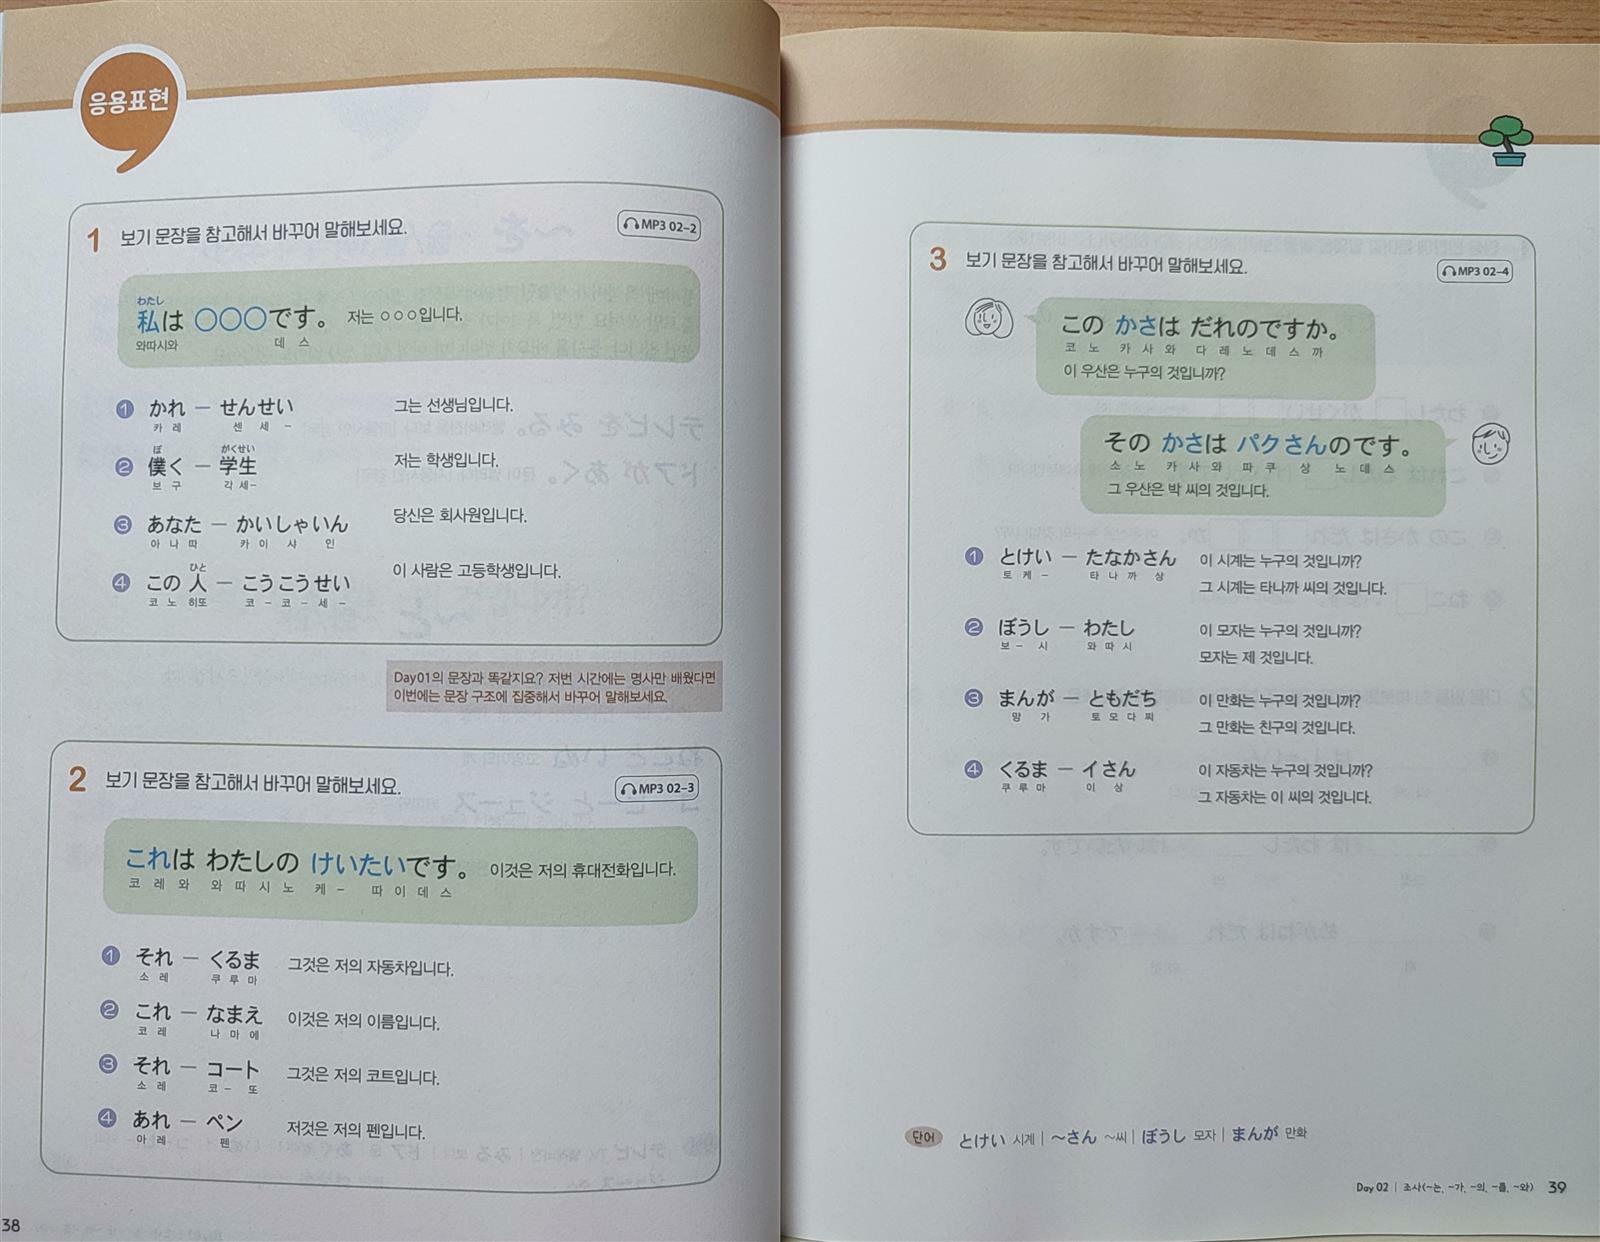 응용표현
1 보기 문장을 참고해서 바꾸어 말해보세요. MP3 02-2
わたし
私は ○○○です。 저는 ○○○입니다.
와따시와 데스
1 かれ － せんせい 그는 선생님입니다.
카레 센세-
ぼ がくせい
2 僕く － 学生 저는 학생입니다.
보구 각세-
3 あなた － かいしゃいん 당신은 회사원입니다.
아나따 카이샤인
ひと
4 この 人 － こうこうせい 이 사람은 고등학생입니다.
코노 히또 코-코-세-
Day01의 문장과 똑같지요? 저번 시간에는 명사만 배웠다면
이번에는 문장 구조에 집중해서 바꾸어 말해보세요.
2 보기 문장을 참고해서 바꾸어 말해보세요. MP3 02-3
これは わたしの けいたいです。 이것은 저의 휴대전화입니다.
코레와 와따시노 케-따이데스
1 それ － くるま 그것은 저의 자동차입니다.
소레 쿠루마
2 これ － なまえ 이것은 저의 이름입니다.
코레 나마에
3 それ － コート 그것은 저의 코트입니다.
소레 코-또
4 あれ － ペン 저것은 저의 펜입니다.
아레 펜
38
3 보기 문장을 참고해서 바꾸어 말해보세요. MP3 02-4
この かさは だれのですか。
코노 카사와 다레노데스까
이 우산은 누구의 것입니까?
その かさは パクさんのです。
소노 카사와 파쿠상노데스
그 우산은 박 씨의 것입니다.
1 とけい － たなかさん 이 시계는 누구의 것입니까?
토케- 타나까상
그 시계는 타나까 씨의 것입니다.
2 ぼうし － わたし 이 모자는 누구의 것입니까?
보-시 와따시
모자는 제 것입니다.
3 まんが － ともだち 이 만화는 누구의 것입니까?
망가 토모다찌
그 만화는 친구의 것입니다.
4 くるま － イさん 이 자동차는 누구의 것입니까?
쿠루마 이상
그 자동차는 이 씨의 것입니다.
단어 とけい 시계 | ～さん ~씨 | ぼうし 모자 | まんが 만화
Day 02 | 조사(~는, ~가, ~의, ~를, ~와) 39